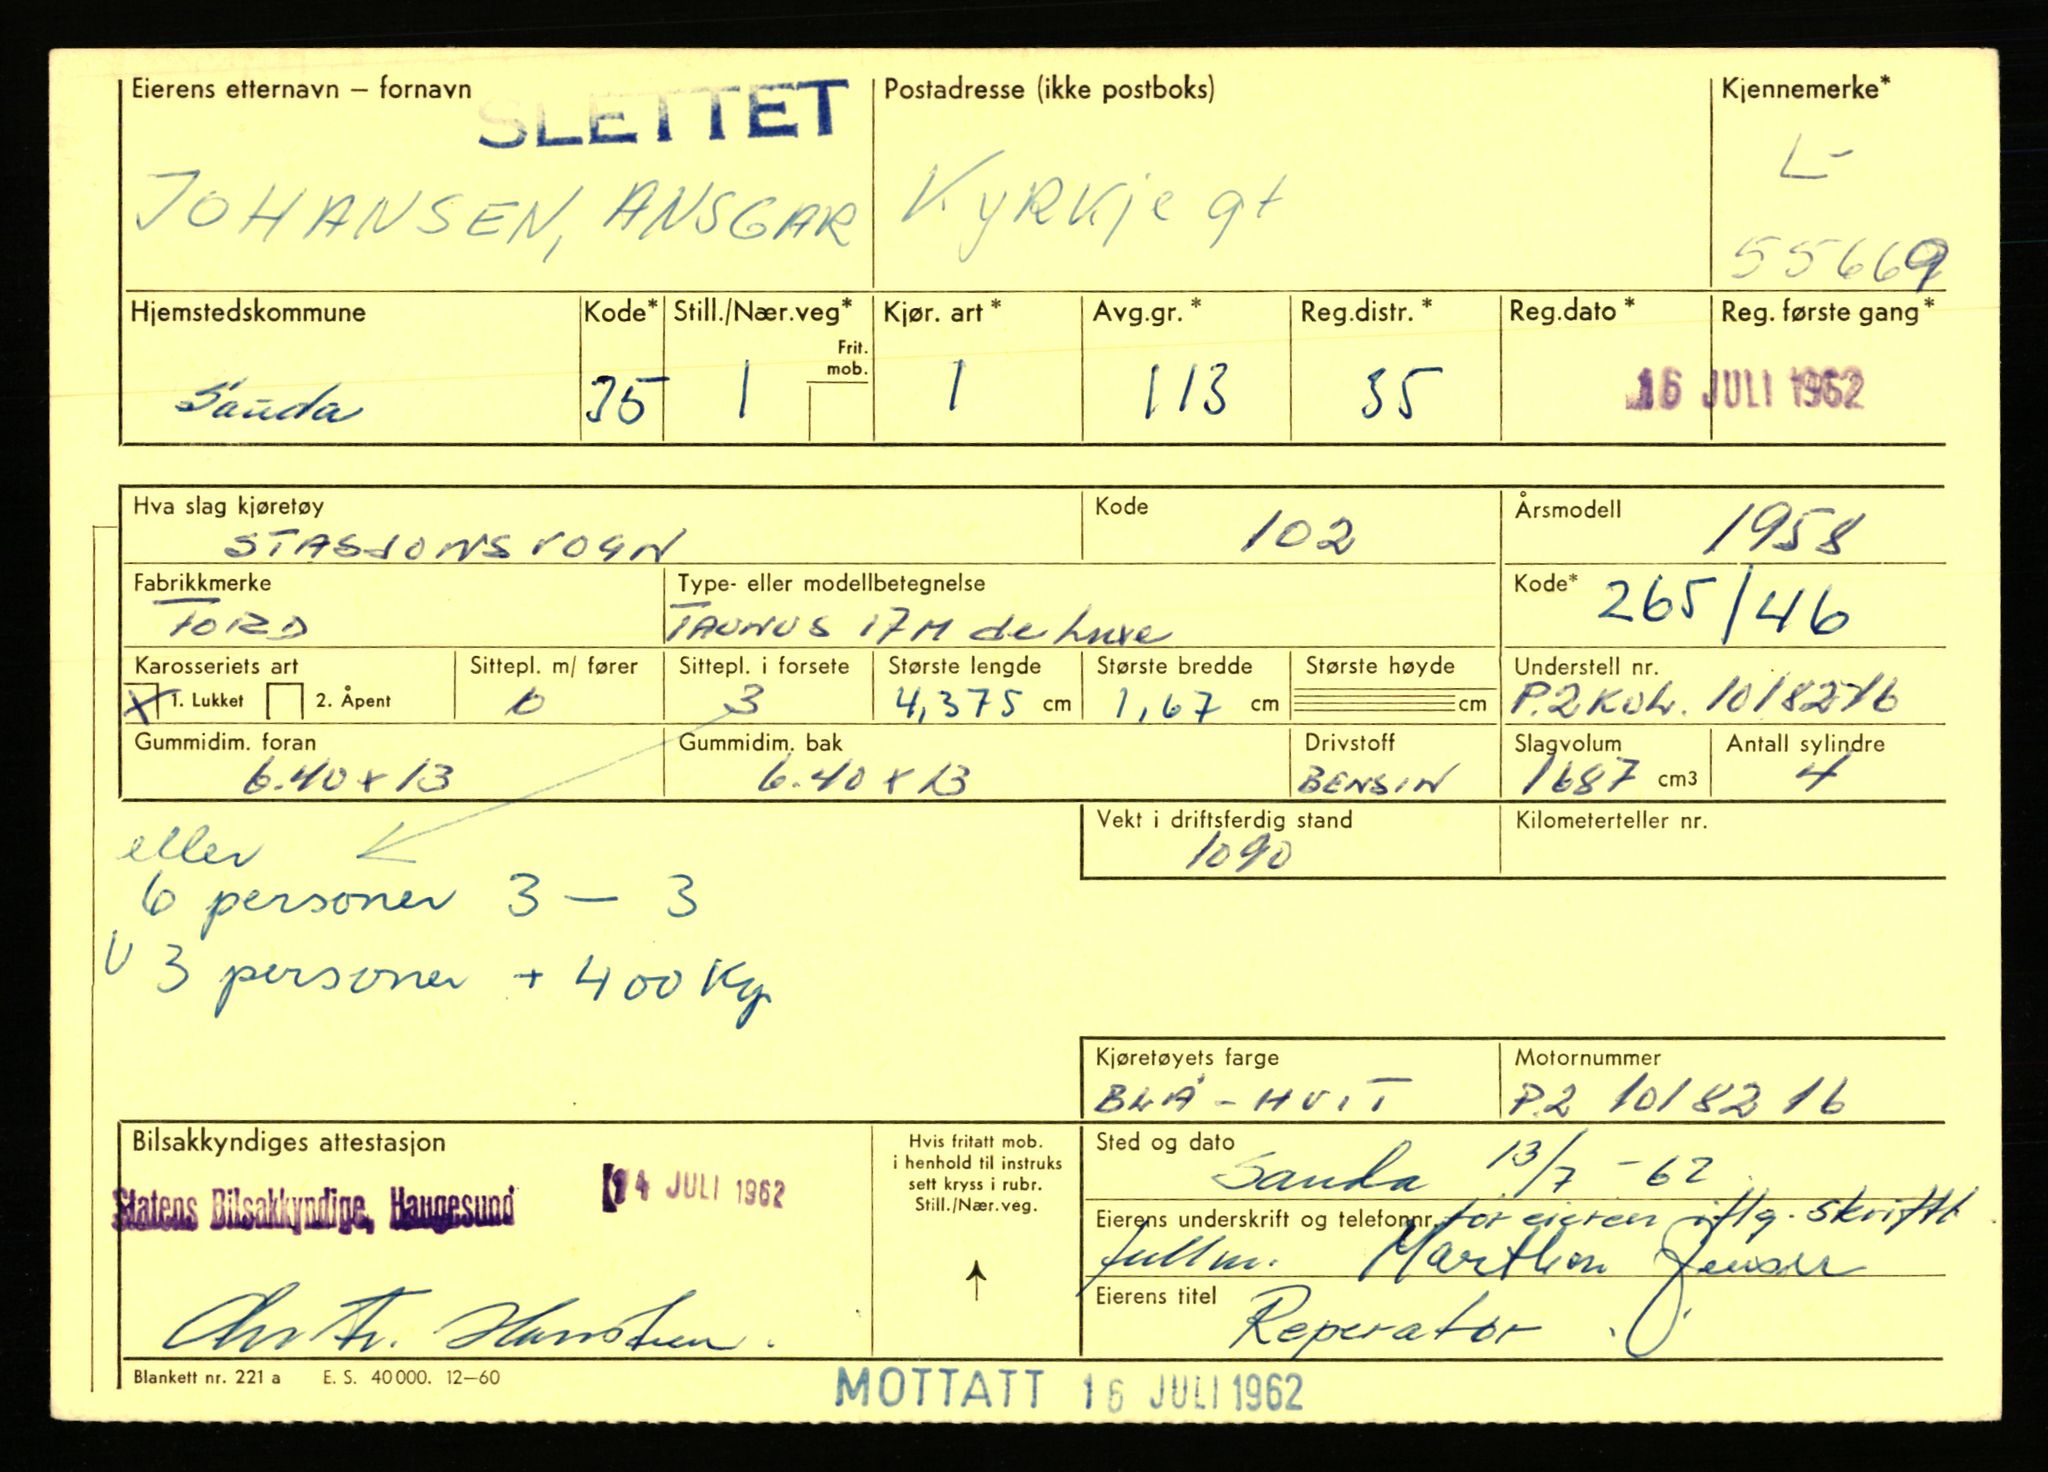 Eierens etternavn – fornavn
SLETTET
Postadresse (ikke postboks)
Kjennemerke*
JOHANSEN, ANSGAR
KyRKje gt
L-
55669
Hjemstedskommune
Kode*
Still./Nær.veg*
Frit.
mob.
Kjør. art *
Avg.gr. *
Reg.distr. *
Reg.dato *
Reg. første gang *
Sauda
35
1
1
113
35
16 JULI 1962
Hva slag kjøretøy
STASJONSVOGN
Kode
102
Årsmodell
1958
Fabrikkmerke
FORD
Type- eller modellbetegnelse
TAUNUS 17M de Luxe
Kode*
265/46
Karosseriets art
Sittepl. m/ fører
Sittepl. i forsete
Største lengde
Største bredde
Største høyde
Understell nr.
X 1. Lukket
2. Åpent
6
3
4,375 cm
1,67 cm
cm
Gummidim. foran
Gummidim. bak
Drivstoff
Slagvolum
Antall sylindre
6.40 x 13
6.40 x 13
BENSIN
1687 cm3
4
Vekt i driftsferdig stand
1090
Kilometerteller nr.
eller
6 personer 3 – 3
3 personer + 400 Kg
Kjøretøyets farge
BLÅ - HVIT
Motornummer
P.2 1018216
Bilsakkyndiges attestasjon
14 JULI 1962
Statens Bilsakkyndige, Haugesund
Hvis fritatt mob.
i henhold til instruks
sett kryss i rubr.
Still./Nær.veg.
↑
Sted og dato
Sauda 13/7 -62
Eierens underskrift og telefonnr.
for eieren iflg. skriftl.
fullm.
Jensen
Eierens titel
Reperatør
Blankett nr. 221 a E. S. 40 000. 12–60
MOTTATT 16 JULI 1962